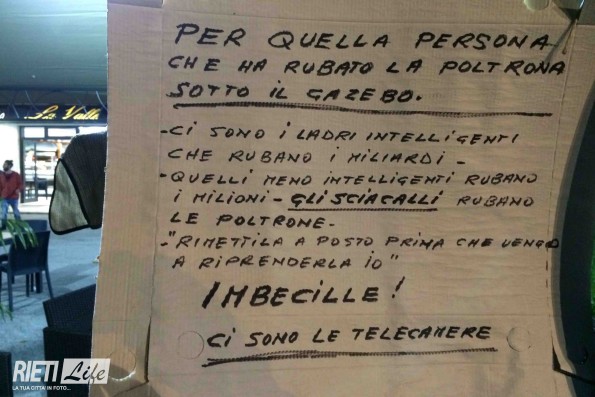 PER QUELLA PERSONA
CHE HA RUBATO LA POLTRONA
SOTTO IL GAZEBO.
-CI SONO I LADRI INTELLIGENTI
CHE RUBANO I MILIARDI -
-QUELLI MENO INTELLIGENTI RUBANO
I MILIONI - GLI SCIACALLI RUBANO
LE POLTRONE.
-"RIMETTILA A POSTO PRIMA CHE VENGO
A RIPRENDERLA IO"
IMBECILLE!
CI SONO LE TELECAMERE
La Valle
RIETI Life
LA TUA CITTÀ IN FOTO...